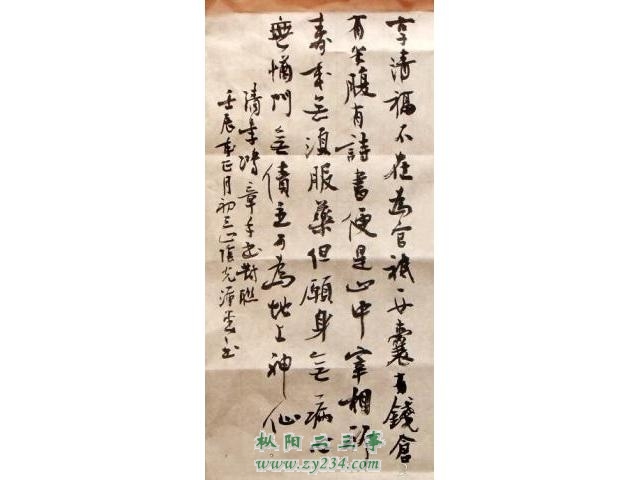 享清福不在為官祇要囊有錢倉
有米腹有詩書便是山中宰相祈
壽年無須服藥但願身無病心
無門無債主可為地上神仙
清李鴻章手書對聯
壬辰年正月初三
枞阳二三事
www.zy234.com